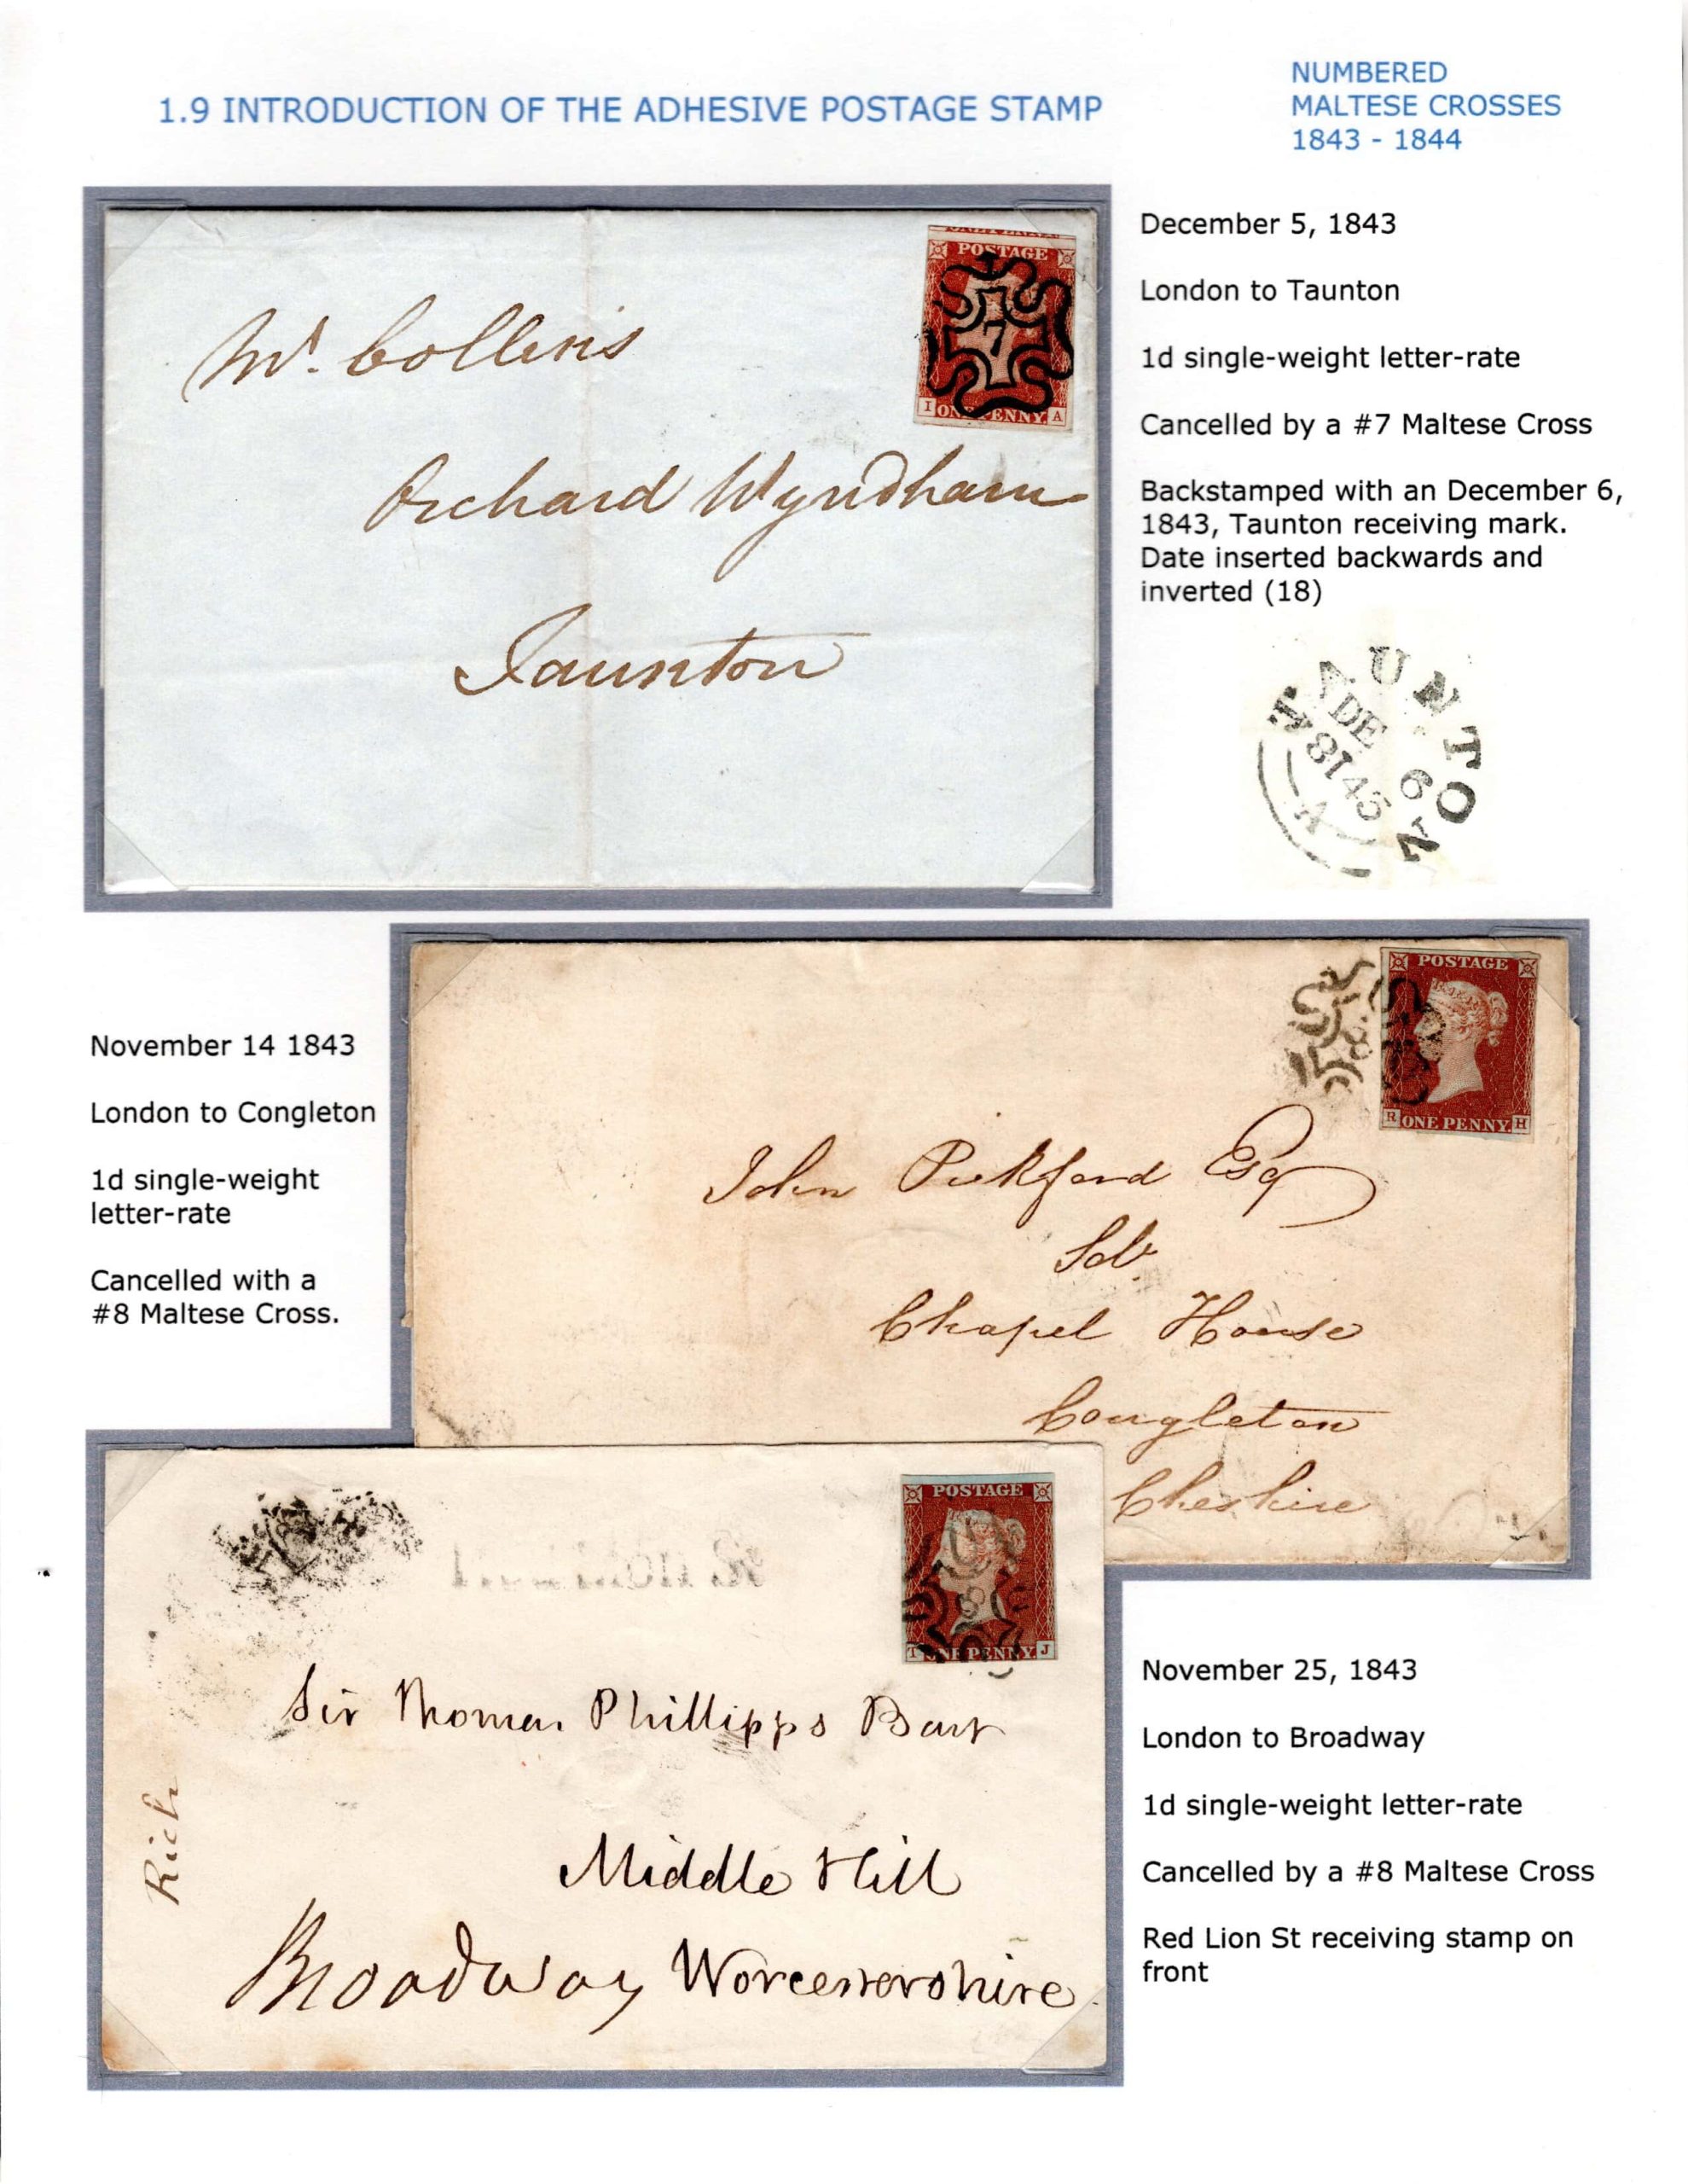 1.9 INTRODUCTION OF THE ADHESIVE POSTAGE STAMP
NUMBERED
MALTESE CROSSES
1843 - 1844
POSTAGE
7
I ONE PENNY A
Mr. Collins
Orchard Wyndham
Taunton
December 5, 1843
London to Taunton
1d single-weight letter-rate
Cancelled by a #7 Maltese Cross
Backstamped with an December 6,
1843, Taunton receiving mark.
Date inserted backwards and
inverted (18)
TAUNTON
DE 6
8143
A
November 14 1843
London to Congleton
1d single-weight
letter-rate
Cancelled with a
#8 Maltese Cross.
POSTAGE
8
R ONE PENNY H
John Pickford Esq
Solr
Chapel House
Congleton
Cheshire
POSTAGE
8
T ONE PENNY J
Sir Thomas Phillipps Bart
Middle Hill
Broadway Worcestershire
Rich
November 25, 1843
London to Broadway
1d single-weight letter-rate
Cancelled by a #8 Maltese Cross
Red Lion St receiving stamp on
front